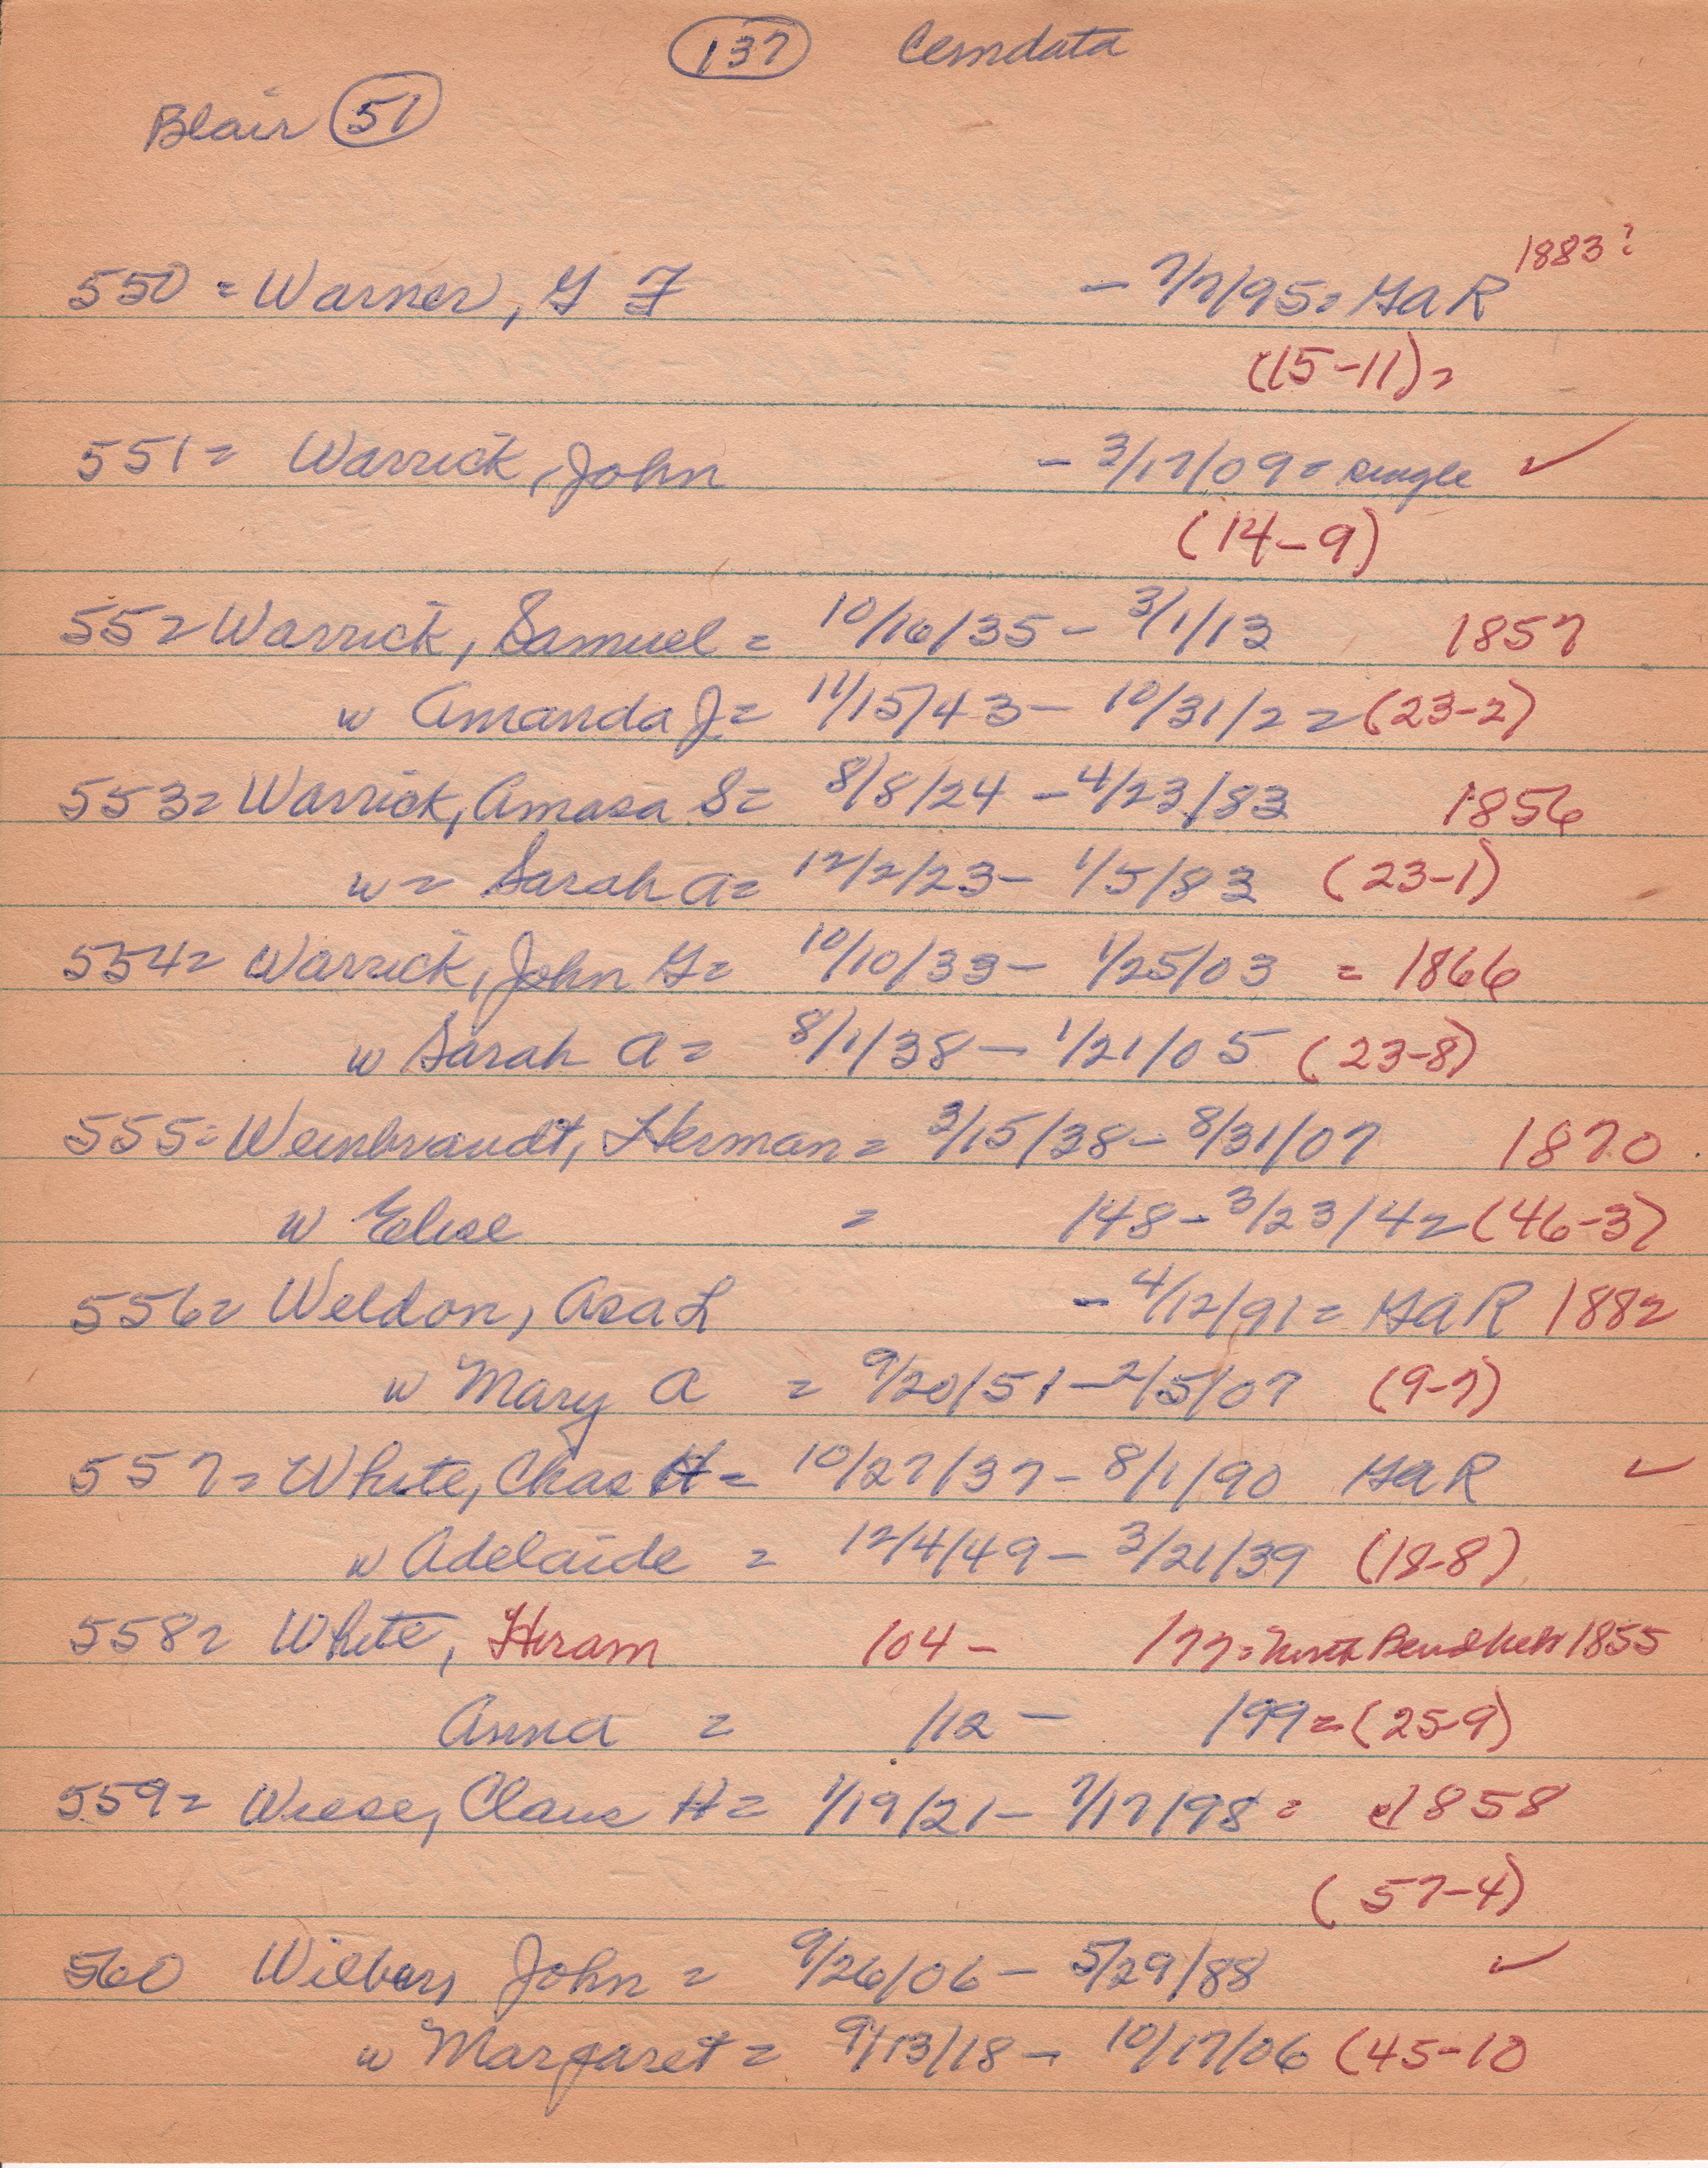 137 Cemdata
Blair 51
1883?
550 = Warner, G F - 7/7/95 = GAR
(15-11) =
551 = Warrick, John - 3/17/09 = single ✓
(14-9)
552 Warrick, Samuel = 10/16/35 - 3/1/13 1857
w Amanda J = 11/15/43 - 10/31/22 = (23-2)
553 = Warrick, Amasa S = 8/8/24 - 4/23/83 1856
w = Sarah A = 12/2/23 - 1/5/83 (23-1)
554 = Warrick, John G = 10/10/33 - 1/25/03 = 1866
w Sarah A = 8/1/38 - 1/21/05 (23-8)
555 = Weinbrandt, Herman = 3/15/38 - 8/31/07 1870
w Elise = /48 - 3/23/42 (46-3)
556 = Weldon, Asa L - 4/12/91 = GAR 1882
w Mary A = 9/20/51 - 2/5/07 (9-7)
557 = White, Chas H = 10/27/37 - 8/1/90 GAR ✓
w Adelaide = 12/4/49 - 3/21/39 (18-8)
558 = White, Hiram /04 - /77 = North Bend 1855
Anna = /12 - /99 = (25-9)
559 = Wiese, Claus H = 1/19/21 - 7/17/98 = 1858
(57-4)
560 Wilbers John = 9/26/06 - 5/29/88 ✓
w Margaret = 9/13/18 - 10/17/06 (45-10